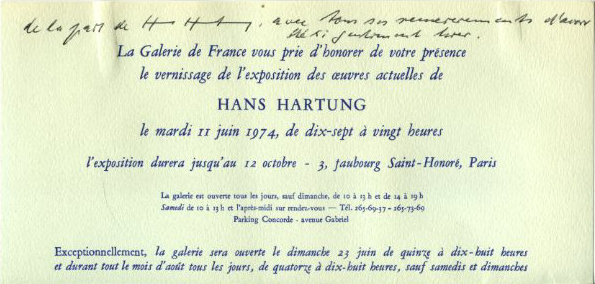 de la part de H H, avec tous ses remerciements d'avoir
été si gentiment
La Galerie de France vous prie d'honorer de votre présence
le vernissage de l'exposition des œuvres actuelles de
HANS HARTUNG
le mardi 11 juin 1974, de dix-sept à vingt heures
l'exposition durera jusqu'au 12 octobre - 3, faubourg Saint-Honoré, Paris
La galerie est ouverte tous les jours, sauf dimanche, de 10 à 13 h et de 14 à 19 h
Samedi de 10 à 13 h et l'après-midi sur rendez-vous — Tél. 265-69-37 - 265-73-69
Parking Concorde - avenue Gabriel
Exceptionnellement, la galerie sera ouverte le dimanche 23 juin de quinze à dix-huit heures
et durant tout le mois d'août tous les jours, de quatorze à dix-huit heures, sauf samedis et dimanches